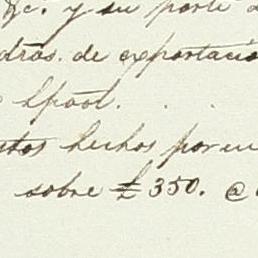 &c. y su porte
dros. de exportació
Lpool. . .
stos hechos por
sobre £350. @